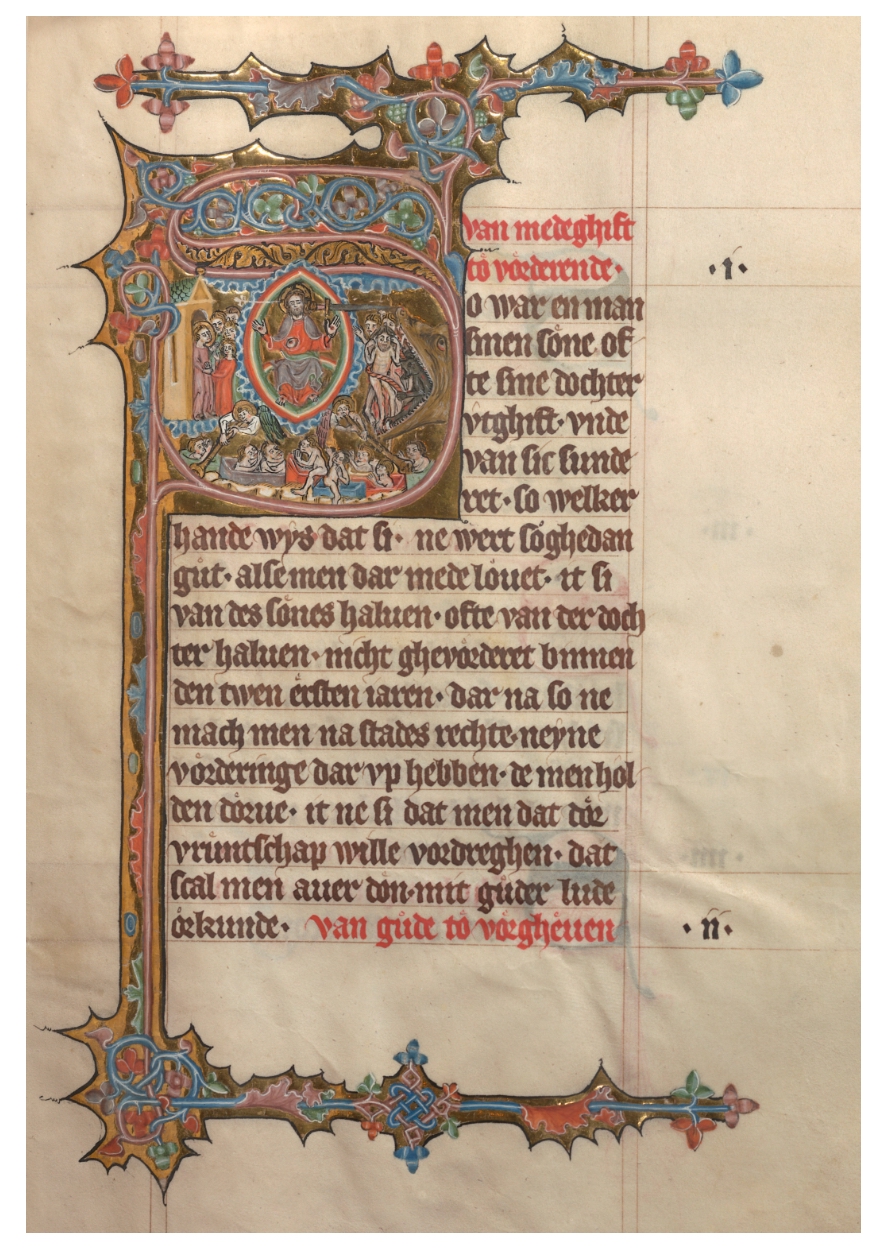 van medeghift
tͦo vͦorderende·
·i·
So war en man
sinen sͦone of
te sine dochter
vtghift· vnde
van sic sunde
ret· so welker
hande wys dat si· ne wert sͦoghedan
gͦut· alse men dar mede louet· it si
van des sͦones haluen· ofte van der doch
ter haluen· nicht ghevͦorderet binnen
den twen ersten iaren· dar na so ne
mach men na stades rechte neyne
vͦorderinge dar vp hebben· de men hol
den dͦorue· it ne si dat men dat dͦor
vruntschap wille vordreghen· dat
scal men auer dͦon· mit gͦuder lude
ͦorkunde· van gͦude tͦo vͦorgheuen
·ii·